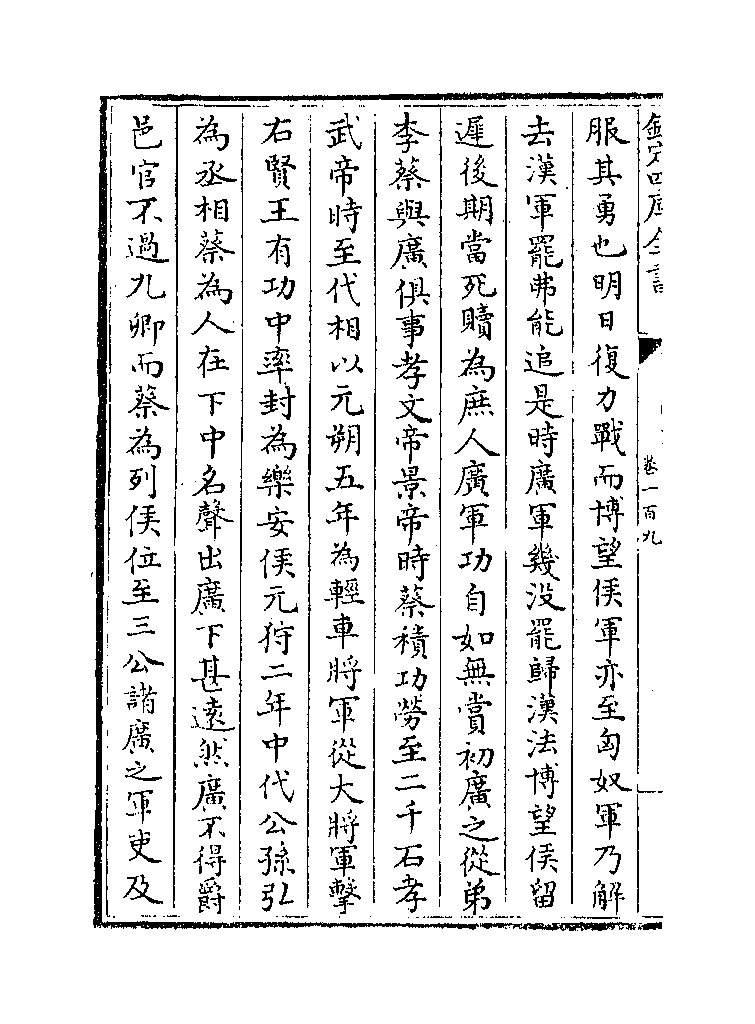 欽定四庫全書
卷一百九
服其勇也明日復力戰而博望侯軍亦至匈奴軍乃解
去漢軍罷弗能追是時廣軍幾沒罷歸漢法博望侯留
遲後期當死贖為庶人廣軍功自如無賞初廣之從弟
李蔡與廣俱事孝文帝景帝時蔡積功勞至二千石孝
武帝時至代相以元朔五年為輕車將軍從大將軍擊
右賢王有功中率封為樂安侯元狩二年中代公孫弘
為丞相蔡為人在下中名聲出廣下甚遠然廣不得爵
邑官不過九卿而蔡為列侯位至三公諸廣之軍吏及